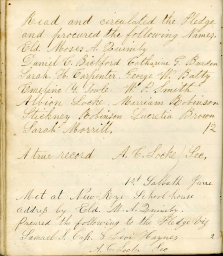 Read and circulated the Pledge
and procured the following Names.
Eld. Moses A. Quimby
Daniel C. Bickford Catharine G. Bardon
Sarah H. Carpenter. George W. Batty
Emeline G. Towle W. P. Smith
Albion Locke Merriam Robinson
Stickney Robinson Lucretia Brown
Sarah Morrill, 12
A true record A. C. Locke, Sec,
1st Sabbath June
Met at New-Rye School-house
address by Eld. M. A. Quimby.
Procured the following to the Pledge by
Samuel S. Haynes 2
A. C. Locke Sec